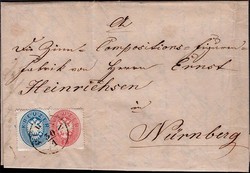 An
Die Zinn-Compositions-Figuren-
Fabrik von Herrn Ernst
Heinrichsen
in
Nürnberg